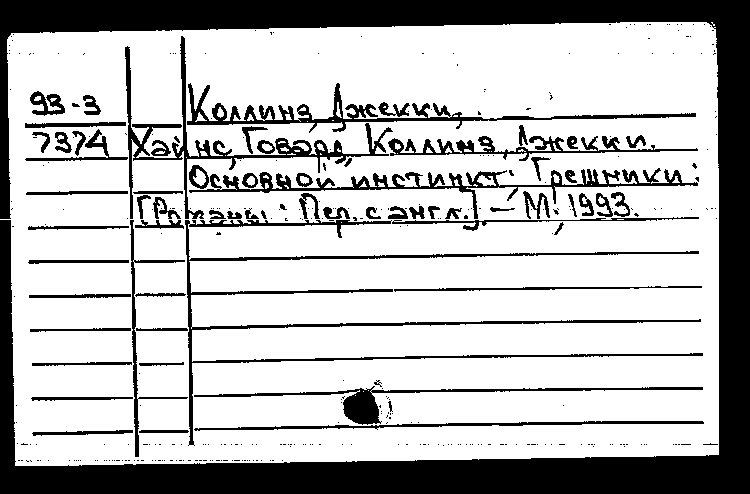 93-3 Коллинз, Джекки,
7374 Хайнс, Говард, Коллинз, Джекки.
Основной инстинкт; Грешники:
[Романы: Пер. с англ.]. – М., 1993.